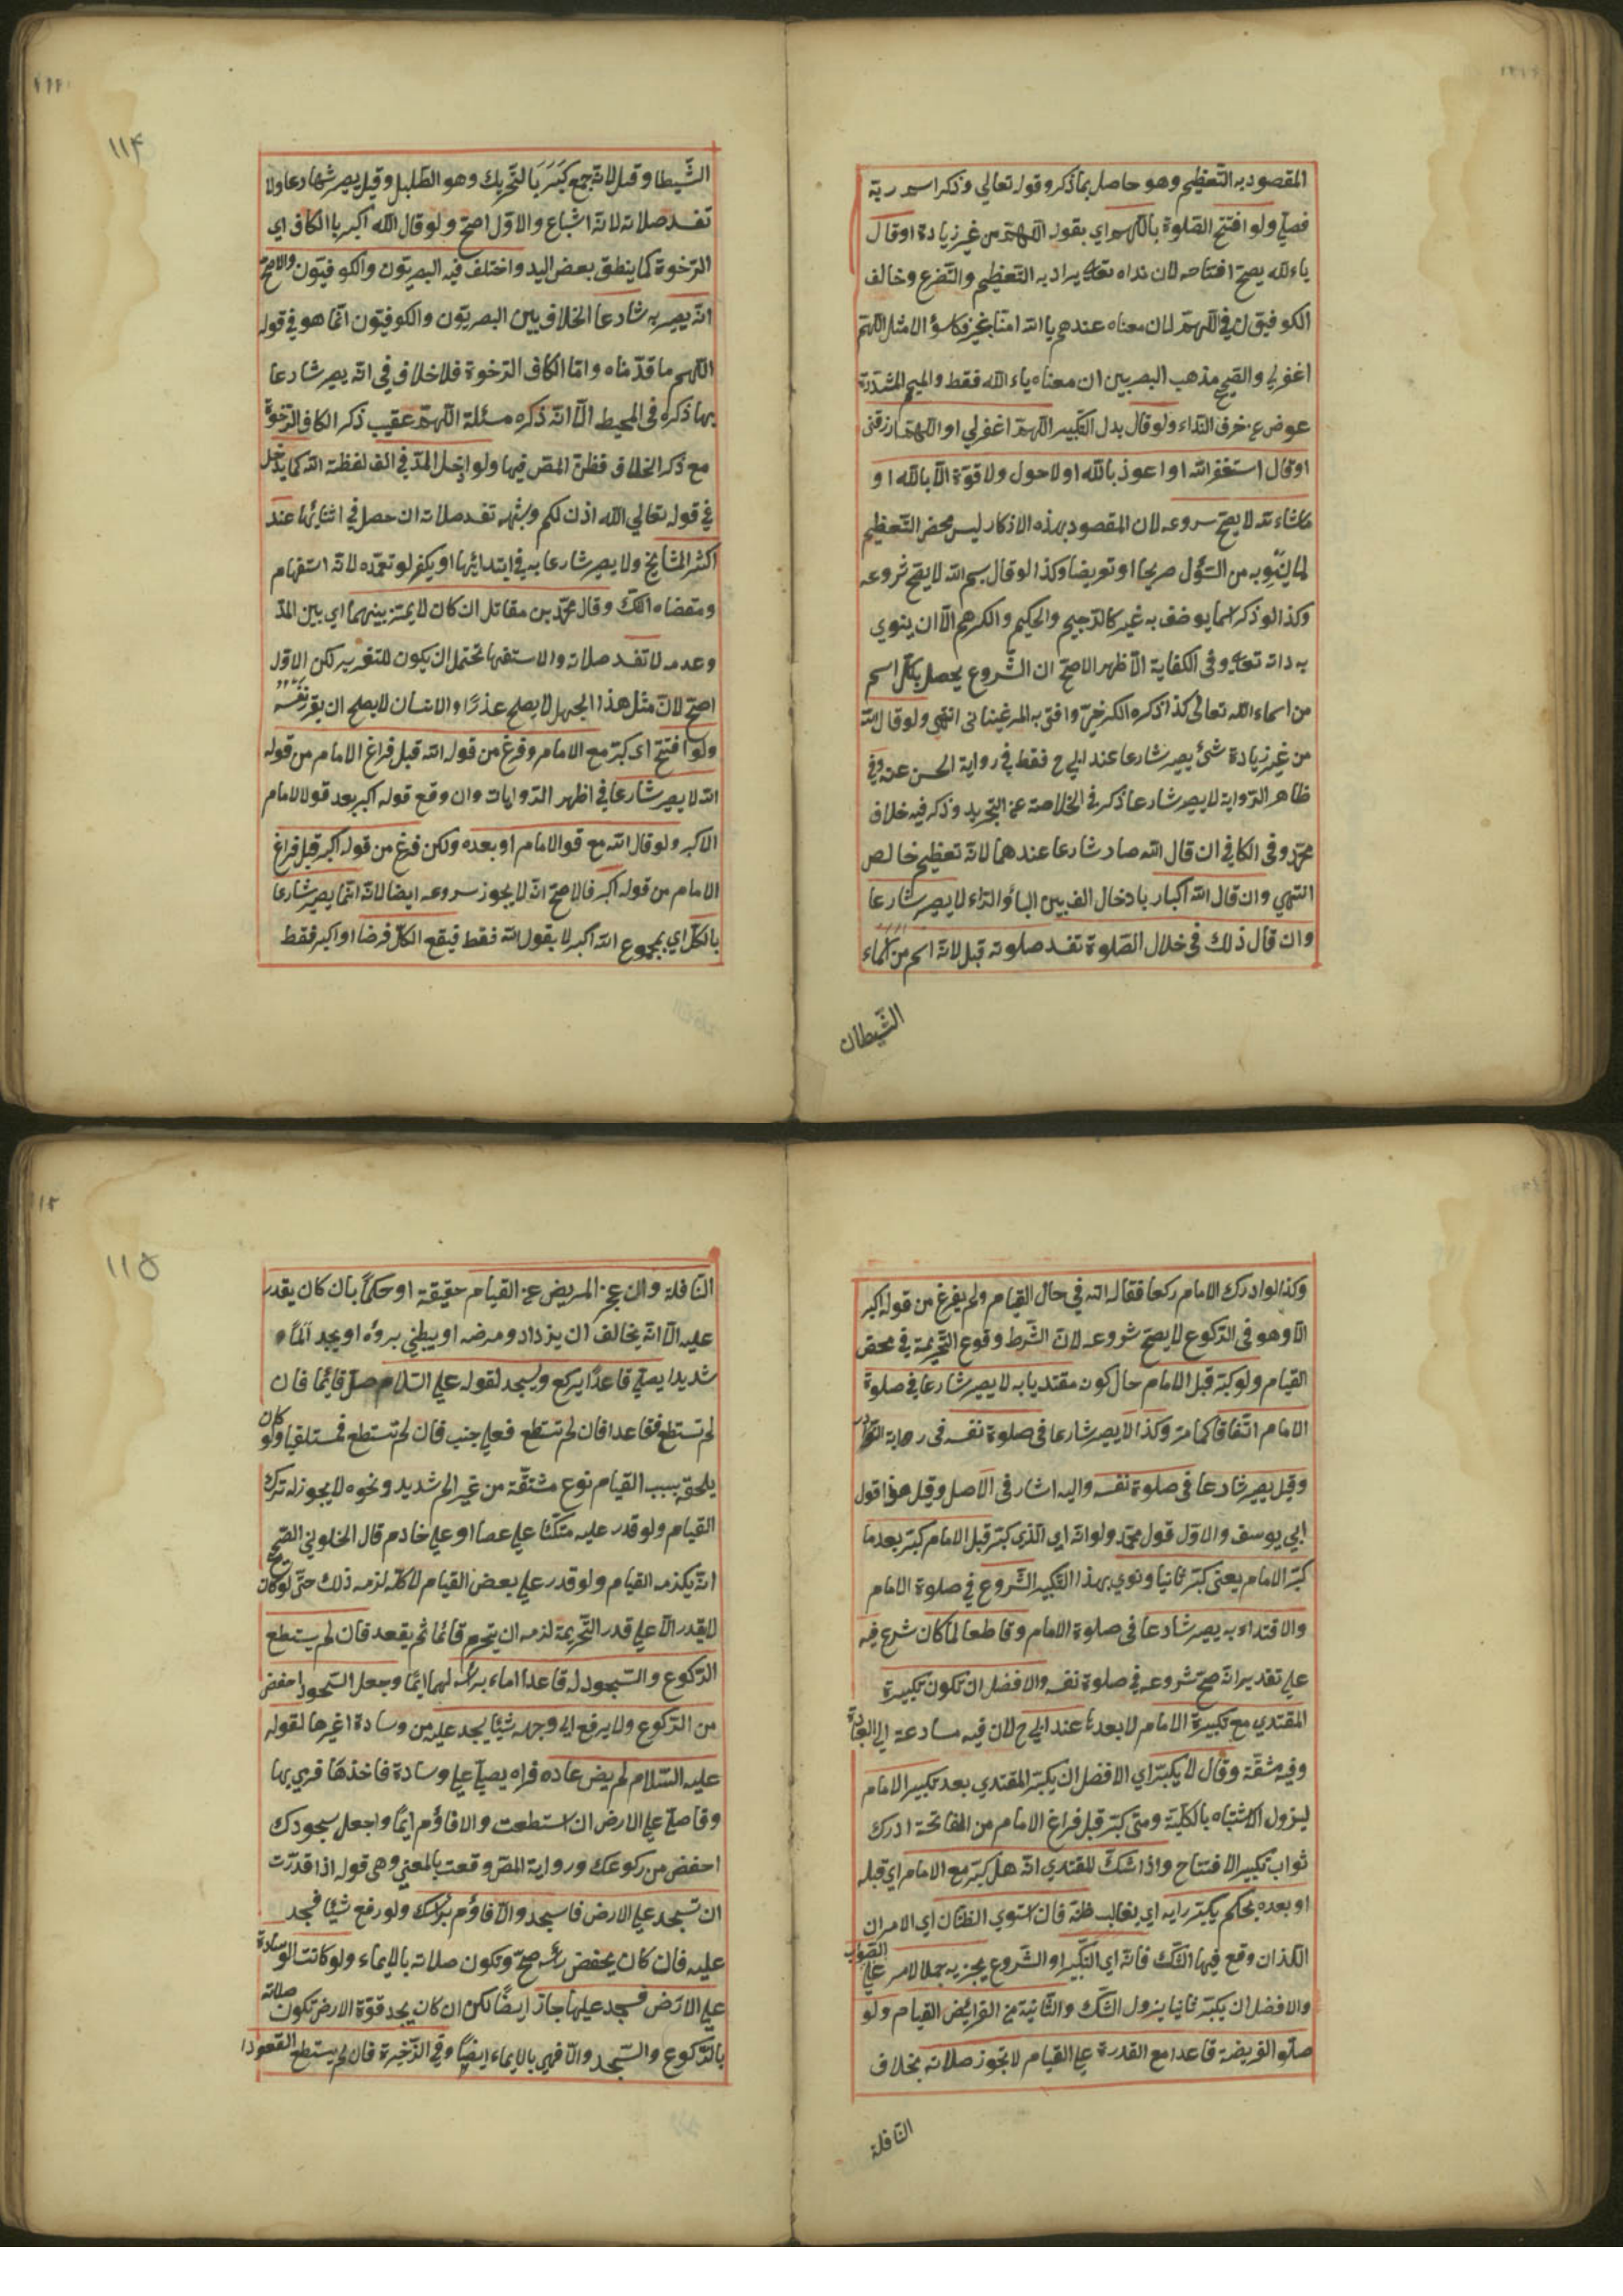 المقصود به التعظيم وهو حاصل بما ذكر وقوله تعالي وذكر اسم ربه
فصلي ولو افتتح الصلوة باللهم اي بقوله اللهم من غير زيادة او قال
ياءلله يصح افتتاحه لان نداه تعالي يراد به التعظيم والتضرع وخالف
الكوفيون في اللهم لان معناه عندهم يا الله امنا بخير فكا سؤالا مثل اللهم
اغفرلي والصحيح مذهب البصريين ان معناه ياء الله فقط والميم المشددة
عوض عن حرف النداء ولو قال بدل التكبير اللهم اغفرلي او اللهم ارزقني
او قال استغفر الله او اعوذ بالله او لا حول ولا قوة الا بالله او
ماشاء لله لا يصح شروعه لان المقصود بهذه الاذكار ليس محض التعظيم
لما ينوبه من السؤل صريحا او تعويضا وكذا لو قال بسم الله لا يصح شروعه
وكذا لو ذكر اسما يوصف به غير كالرحيم والحكيم والكرهم الا ان ينوي
به ذاته تعالي وفي الكفاية الاظهر الاصح ان الشروع يحصل بكل اسم
من اسماء الله تعالى كذا ذكره الكرخي وافتى به المرغيناني انتهى ولو قال الله
من غير زيادة شئ يصير شارعا عند ابي ح فقط في رواية الحسن عنه وفي
ظاهر الرواية لا يصير شارعا ذكر في الخلاصة عن التجريد وذكر فيه خلاف
محمد وفي الكافي ان قال الله صار شارعا عندهما لانه تعظيم خالص
انتهي وان قال الله اكبار بادخال الف بين الباؤ الراء لا يصير شارعا
وان قال ذلك في خلال الصلوة تفسد صلوته قيل لانه اسم من اسماء
الشيطان
١١٤
الشيطا وقيل لانه جمع كبر بالتحريك وهو الطبل وقيل يصير شهادعا ولا
تفسد صلاته لانه اشباع والاول اصح ولو قال الله اكبر باالكاف اي
الرخوة كما ينطق بعض اليد واختلف فيه البصريون والكوفيون والاصح
انه يصير به شارعا الخلاف بين البصريون والكوفيون انما هو في قوله
اللهم ما قدمناه واما الكاف الرخوة فلا خلاف في انه يصير شارعا
بها ذكره في المحيط الا انه ذكره مسئلة اللهم عقيب ذكر الكاف الرخوة
مع ذكر الخلاف فظن المص فيها ولو ادخل المد في الف لفظة الله كما يدخل
في قوله تعالي الله اذن لكم وشبهه تفسد صلاته ان حصل في اثنائها عند
اكثر المشايخ ولا يصير شارعا به في ابتدائها او يكفر لو تعمده لانه استفهام
ومقضاه الشك وقال محمد بن مقاتل ان كان لا يميز بينهما اي بين المد
وعدمه لا تفسد صلاته والاستفهام تحتمل ان يكون للتقرير لكن الاول
اصح لان مثل هذا الجهل لا يصلح عذرا والانسان لا يصلح ان يقرر نفسه
ولو افتتح اي كبر مع الامام وفرغ من قوله الله قبل فراغ الامام من قوله
الله لا يصير شارعا في اظهر الروايات وان وقع قوله اكبر بعد قولالامام
الاكبر ولو قال الله مع قوالامام او بعده ولكن فرغ من قوله اكبر قبل فراغ
الامام من قوله اكبر فالاصح انه لا يجوز سروعه ايضا لانه انما يصير شارعا
بالكل اي بمجموع الله اكبر لا بقول الله فقط فيقع الكل فرضا او اكبر فقط
وكذا لو ادرك الامام ركعا فقال الله في حال القيام ولم يفرغ من قوله اكبر
الا وهو في الركوع لا يصح شروعه لان الشرط وقوع التحريمة في محض
القيام ولو كبر قبل الامام حال كون مقتديا به لا يصير شارعا في صلوة
الامام اتفاقا كما مر وكذا لا يصير شارعا في صلوة نفسه في رواية النوادر
وقيل يصير شارعا في صلوة نفسه واليه اشار في الاصل وقيل هذا قول
ابي يوسف والاول قول محمد ولو انه اي الذي كبر قبل الامام كبر بعد ما
كبر الامام يعني كبر ثانيا ونوي بهذا التكبير الشروع في صلوة الامام
والاقتداء به يصير شارعا في صلوة الامام وقاطعا لما كان شرع فيه
علي تقدير انه صح شروعه في صلوة نفسه والافضل ان تكون تكبيرة
المقتدي مع تكبيرة الامام لا بعدها عند ابي ح لان فيه مسارعة الي العبادة
وفيه مشقة وقال لا يكبر اي الافضل ان يكبر المقتدي بعد تكبير الامام
ليزول الاشتباه بالكلية ومتى كبر قبل فراغ الامام من الفاتحة ادرك
ثواب تكبير الافتتاح واذا شك المقتدي انه هل كبر مع الامام اي قبله
او بعده يحكم يكبر رايه اي بغالب ظنه فان استوي الظنان اي الامران
الذان وقع فيها الشك فانه اي التكبير او الشروع يجزيه جملا لامر علي الصواب
والافضل ان يكبر ثانيا يزول الشك والثانية من الفرايض القيام ولو
صلو الفريضة قاعدا مع القدرة علي القيام لا تجوز صلاته بخلاف
النافلة
١١٥
النافلة وان عجز المريض عن القيام حقيقة او حكما بان كان يقدر
عليه الا انه يخالف ان يزداد ومرضه او يبطئ بروه او يجد الما
شديدا يصلي قاعدا يركع ويسجد لقوله علي السلام صل قائما فان
لم تستطع فقاعدا فان لم تستطع فعلي جنب فان لم تستطع فمستلقيا ولو كان
يلحق بسبب القيام نوع مشقة من غير الم شديد ونحوه لا يجوز له ترك
القيام ولو قدر عليه متكئا علي عصا او علي خادم قال الحلوني الصحيح
انه يكزمه القيام ولو قدر علي بعض القيام لا كله لزمه ذلك حتى لو كان
لا يقدر الا علي قدر التحريمة لزمه ان يتحرم قائما ثم يقعد فان لم يستطع
الركوع والسجود له قاعدا اماء براسه لهما ايما وجعل السجود احفض
من الركوع ولا يرفع الي وجهه شيئا يسجد عليه من وسادة اغيرها لقوله
عليه السلام لم يض عاده فراه يصلي علي وسادة فاخذها فري بها
وقا صلي علي الارض ان استطعت والا فاؤم ايما واجعل سجودك
احفض من ركوعك ورواية المص وقعت بالمعني وهي قوله اذا قدرت
ان تسجد علي الارض فاسجد والا فاؤم براسك ولو رفع شيئا فسجد
عليه فان كان يحفض رأسه صح وتكون صلاته بالايماء ولو كانت الوسادة
علي الارض فسجد عليها جاز ايضا لكن ان كان يجد قوة الارض تكون صلاته
بالركوع والسجد والا فهي بالايماء ايضا وفي الذخيرة فان لم يستطع القعود ا